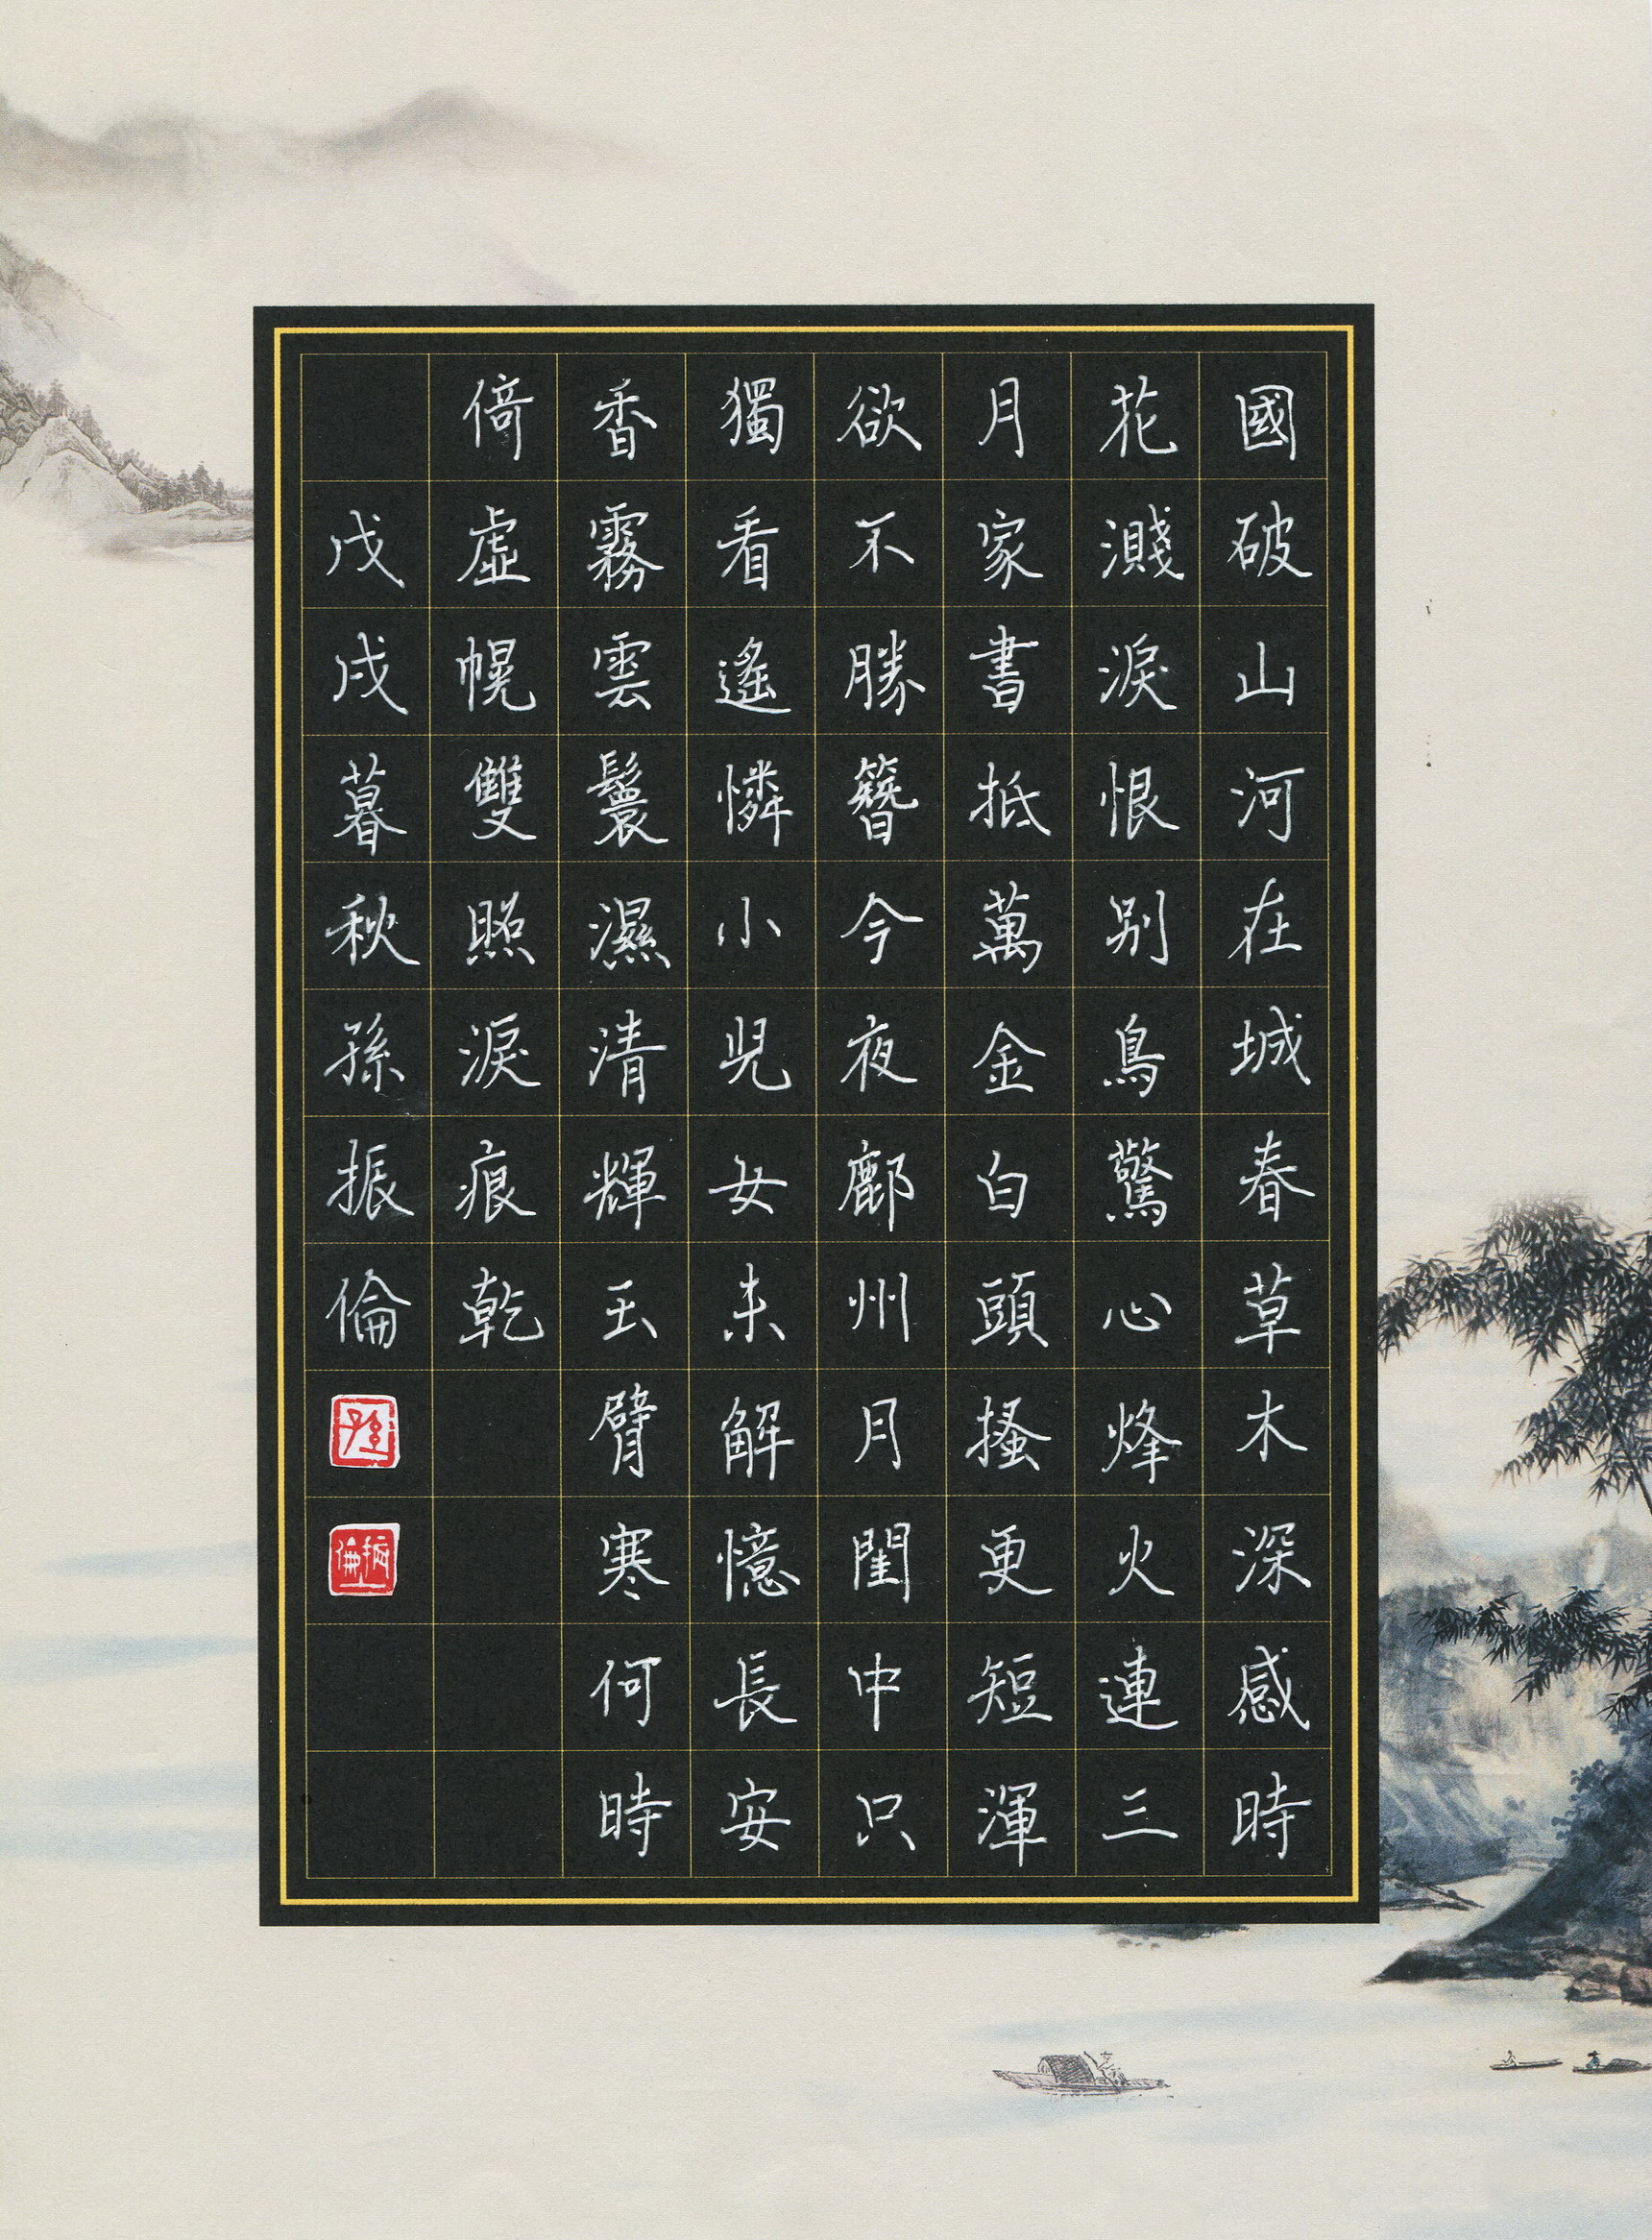 國破山河在城春草木深感時
花濺淚恨别鳥驚心烽火連三
月家書抵萬金白頭搔更短渾
欲不勝簪今夜鄜州月閨中只
獨看遙憐小児女未解憶長安
香霧雲鬟濕清輝玉臂寒何時
倚虛幌雙照淚痕乾
戊戌暮秋孫振倫
孫
振倫